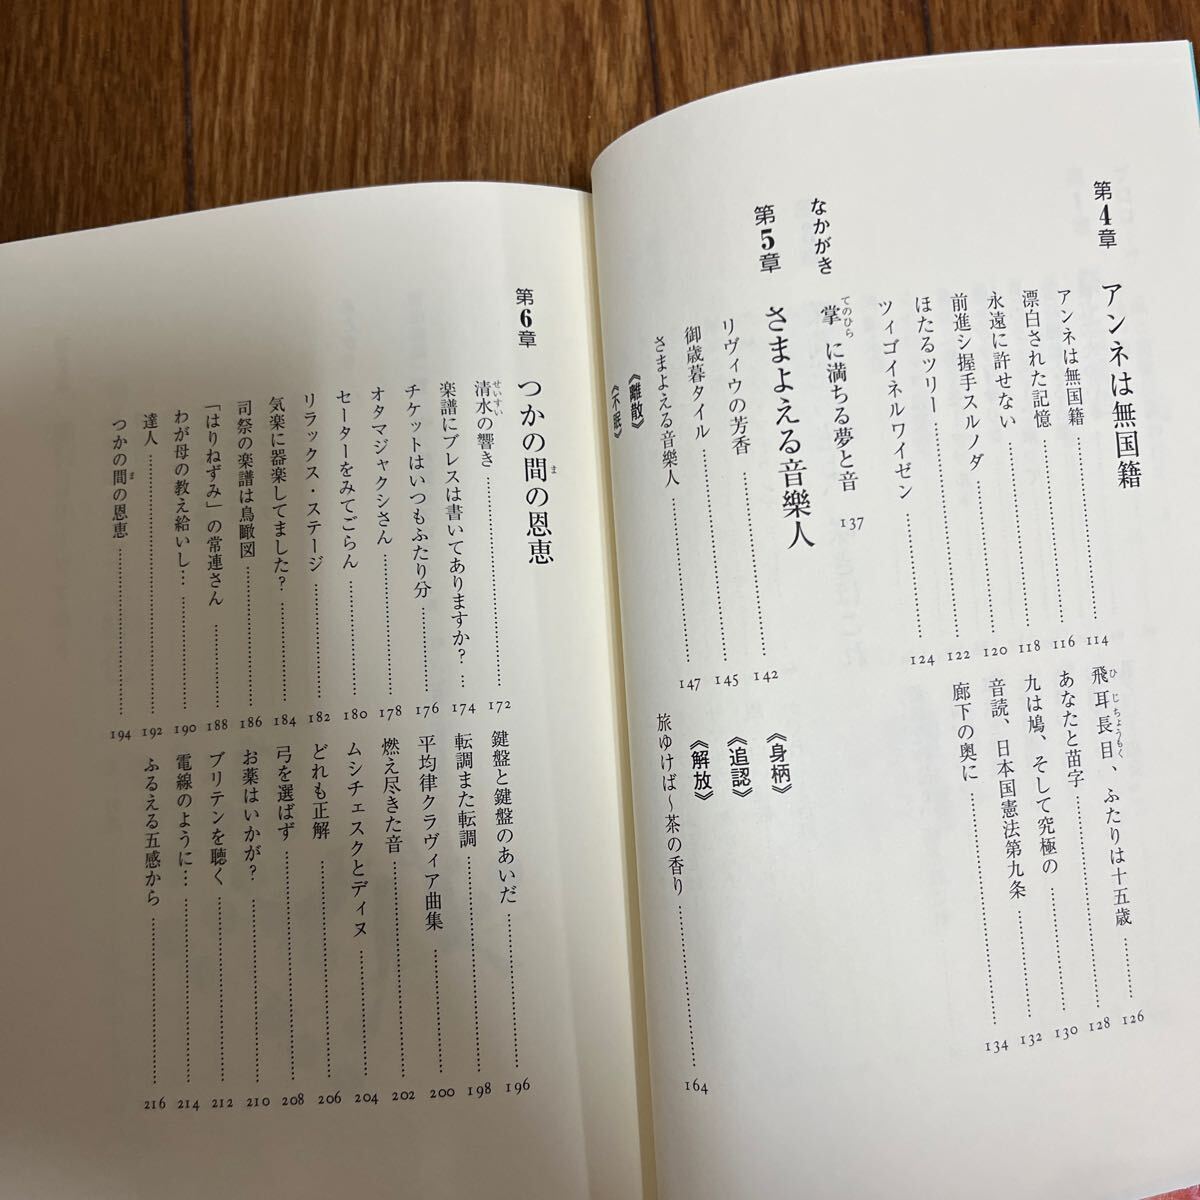 第4章 アンネは無国籍
アンネは無国籍 114
漂白された記憶 116
永遠に許せない 118
前進シ握手スルノダ 120
ほたるツリー 122
ツィゴイネルワイゼン 124
飛耳長目、ふたりは十五歳 126
ひじちょうもく
あなたと苗字 128
九は鳩、そして究極の 130
音読、日本国憲法第九条 132
廊下の奥に 134
なかがき 掌に満ちる夢と音 137
てのひら
第5章 さまよえる音樂人
リヴィウの芳香 142
御歳暮タイル 145
さまよえる音樂人 147
《離散》
《不眠》
《身柄》
《追認》
《解放》
旅ゆけば〜茶の香り 164
第6章 つかの間の恩恵
ま
清水の響き 172
せいすい
楽譜にブレスは書いてありますか? 174
チケットはいつもふたり分 176
オタマジャクシさん 178
セーターをみてごらん 180
リラックス・ステージ 182
気楽に器楽してました? 184
司祭の楽譜は鳥瞰図 186
「はりねずみ」の常連さん 188
わが母の教え給いし… 190
達人 192
つかの間の恩恵 194
ま
鍵盤と鍵盤のあいだ 196
転調また転調 198
平均律クラヴィア曲集 200
燃え尽きた音 202
ムシチェスクとディヌ 204
どれも正解 206
弓を選ばず 208
お薬はいかが? 210
ブリテンを聴く 212
電線のように… 214
ふるえる五感から 216